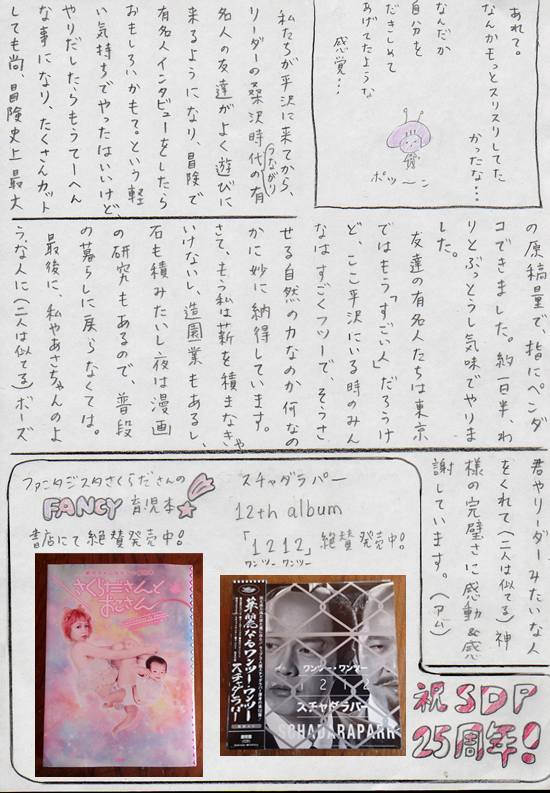 あれて。
なんかもっとスリスリしてた
かったな…
なんだか
自分を
だきしめて
あげてたような
感覚…
ポッ〜ン
私たちが平沢に来てから、
リーダーの桑沢時代の有
つながり
名人の友達がよく遊びに
来るようになり、冒険で
有名人インタビューをしたら
おもしろいかもて。という軽
い気持ちでやったはいいけど、
やりだしたらもうてーへん
な事になり、たくさんカット
しても尚、冒険史上最大
の原稿量で、指にペンダ
コできました。約一日半、わ
りとぶっとうし気味でやりま
した。
友達の有名人たちは東京
ではもう「すごい人」だろうけ
ど、ここ平沢にいる時のみん
なはすごくフツーで、そうさ
せる自然の力なのか何なの
かに妙に納得しています。
さて、もう私は薪を積まなきゃ
いけないし、造園業もあるし、
石も積みたいし夜は漫画
の研究もあるので、普段
の暮らしに戻らなくては。
最後に、私やあさちゃんのよ
うな人に(二人は似てる)ボーズ
君やリーダーみたいな人
をくれて(二人は似てる)神
様の完璧さに感動&感
謝しています。(アム)
ファンタジスタさくらださんの
FANCY育児本
書店にて絶賛発売中!
さくらださんと
おこさん
スチャダラパー
12th album
「1212」絶賛発売中!
ワンツー ワンツー
華麗なるワンツー・ワンツー
スチャダラパー
ワンツー・ワンツー
1212
スチャダラパー
SCHADARAPARR
祝SDP
25周年!